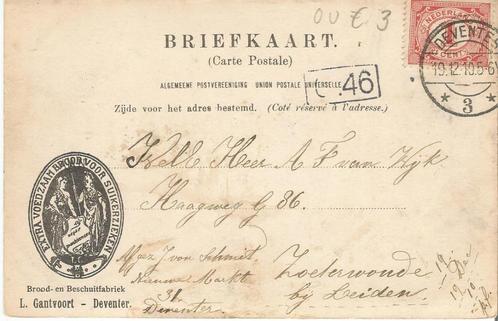 OU € 3
BRIEFKAART.
(Carte Postale)
ALGEMEENE POSTVEREENIGING UNION POSTALE UNIVERSELLE
Zijde voor het adres bestemd. (Coté réservé à l'adresse.)
46
NEDERLAND
DEVENTER
19.12.10.5-6
3
WelEd Heer A F van Wijk
Haagweg G 86.
Zoeterwoude
bij Leiden
EXTRA VOEDZAAM BROOD VOOR SUIKERZIEKEN
Brood- en Beschuitfabriek
L. Gantvoort - Deventer.
J von Schmid
Nieuwe Markt
31.
Deventer
19
Dec
10